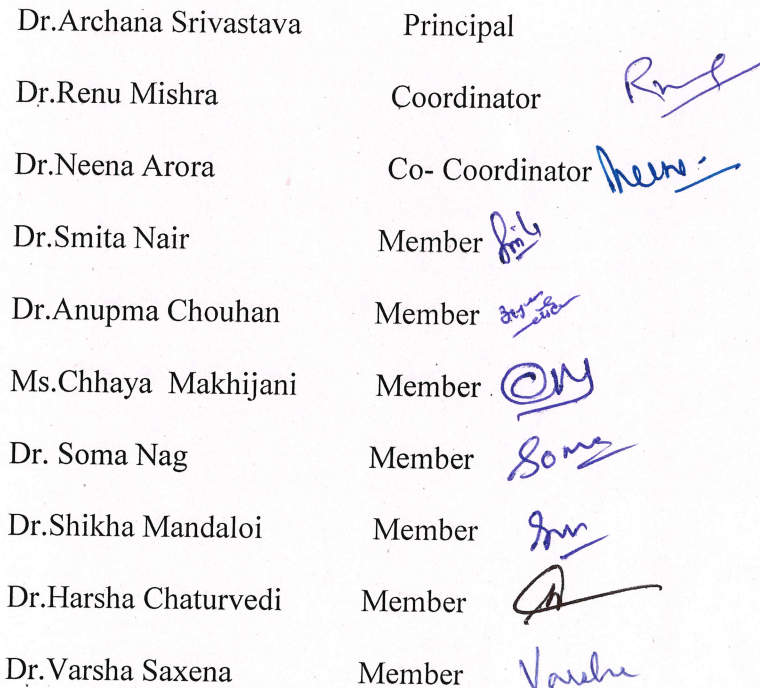 Dr.Archana Srivastava Principal
Dr.Renu Mishra Coordinator
Dr.Neena Arora Co- Coordinator
Dr.Smita Nair Member
Dr.Anupma Chouhan Member
Ms.Chhaya Makhijani Member
Dr. Soma Nag Member Soma
Dr.Shikha Mandaloi Member
Dr.Harsha Chaturvedi Member
Dr.Varsha Saxena Member Varsha